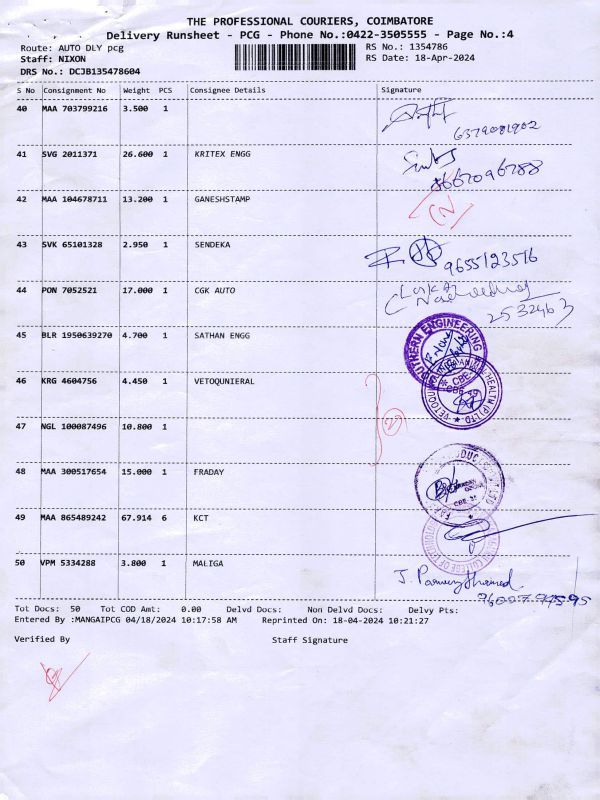 THE PROFESSIONAL COURIERS, COIMBATORE
Delivery Runsheet - PCG - Phone No.:0422-3505555 - Page No.:4
Route: AUTO DLY pcg RS No.: 1354786
Staff: NIXON RS Date: 18-Apr-2024
DRS No.: DCJB135478604
S No Consignment No Weight PCS Consignee Details Signature
40 MAA 703799216 3.500 1
6379081902
41 SVG 2011371 26.600 1 KRITEX ENGG
8667096788
42 MAA 104678711 13.200 1 GANESHSTAMP
CN
43 SVK 65101328 2.950 1 SENDEKA
9655123516
44 PON 7052521 17.000 1 CGK AUTO
2532463
45 BLR 1950639270 4.700 1 SATHAN ENGG
ENGINEERING
46 KRG 4604756 4.450 1 VETOQUNIERAL
HEALTH (P) LTD
47 NGL 100087496 10.800 1
48 MAA 300517654 15.000 1 FRADAY
49 MAA 865489242 67.914 6 KCT
COLLEGE OF
50 VPM 5334288 3.800 1 MALIGA
Tot Docs: 50 Tot COD Amt: 0.00 Delvd Docs: Non Delvd Docs: Delvy Pts:
Entered By :MANGAIPCG 04/18/2024 10:17:58 AM Reprinted On: 18-04-2024 10:21:27
Verified By Staff Signature